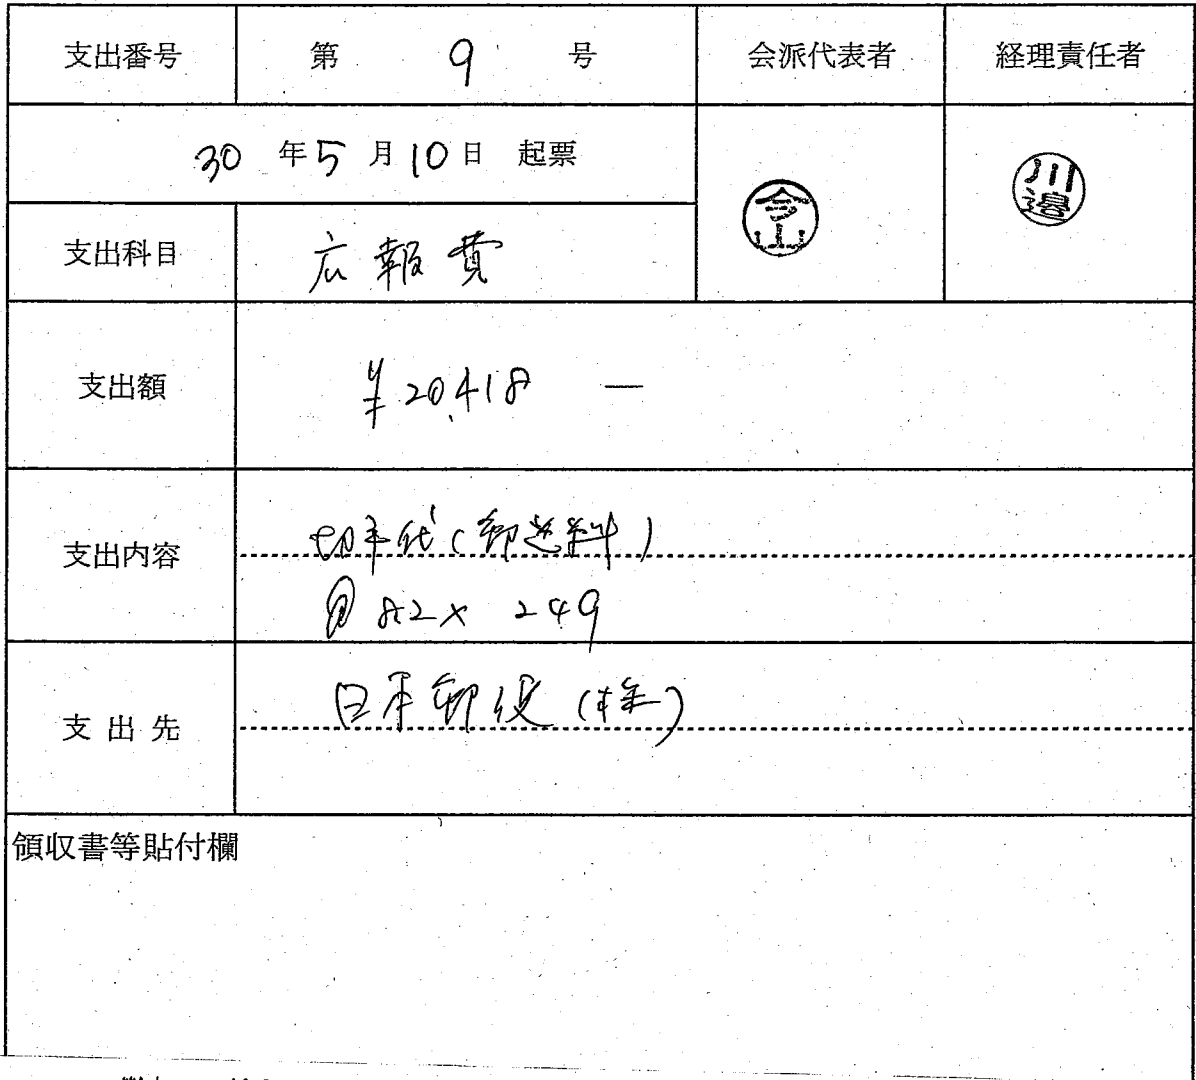 支出番号 第 9 号 会派代表者 経理責任者
30 年 5 月 10 日 起票
今山
川邉
支出科目 広報費
支出額 ¥20,418 ―
支出内容 切手代(郵送料)
@82× 249
支出先 日本郵便(株)
領収書等貼付欄